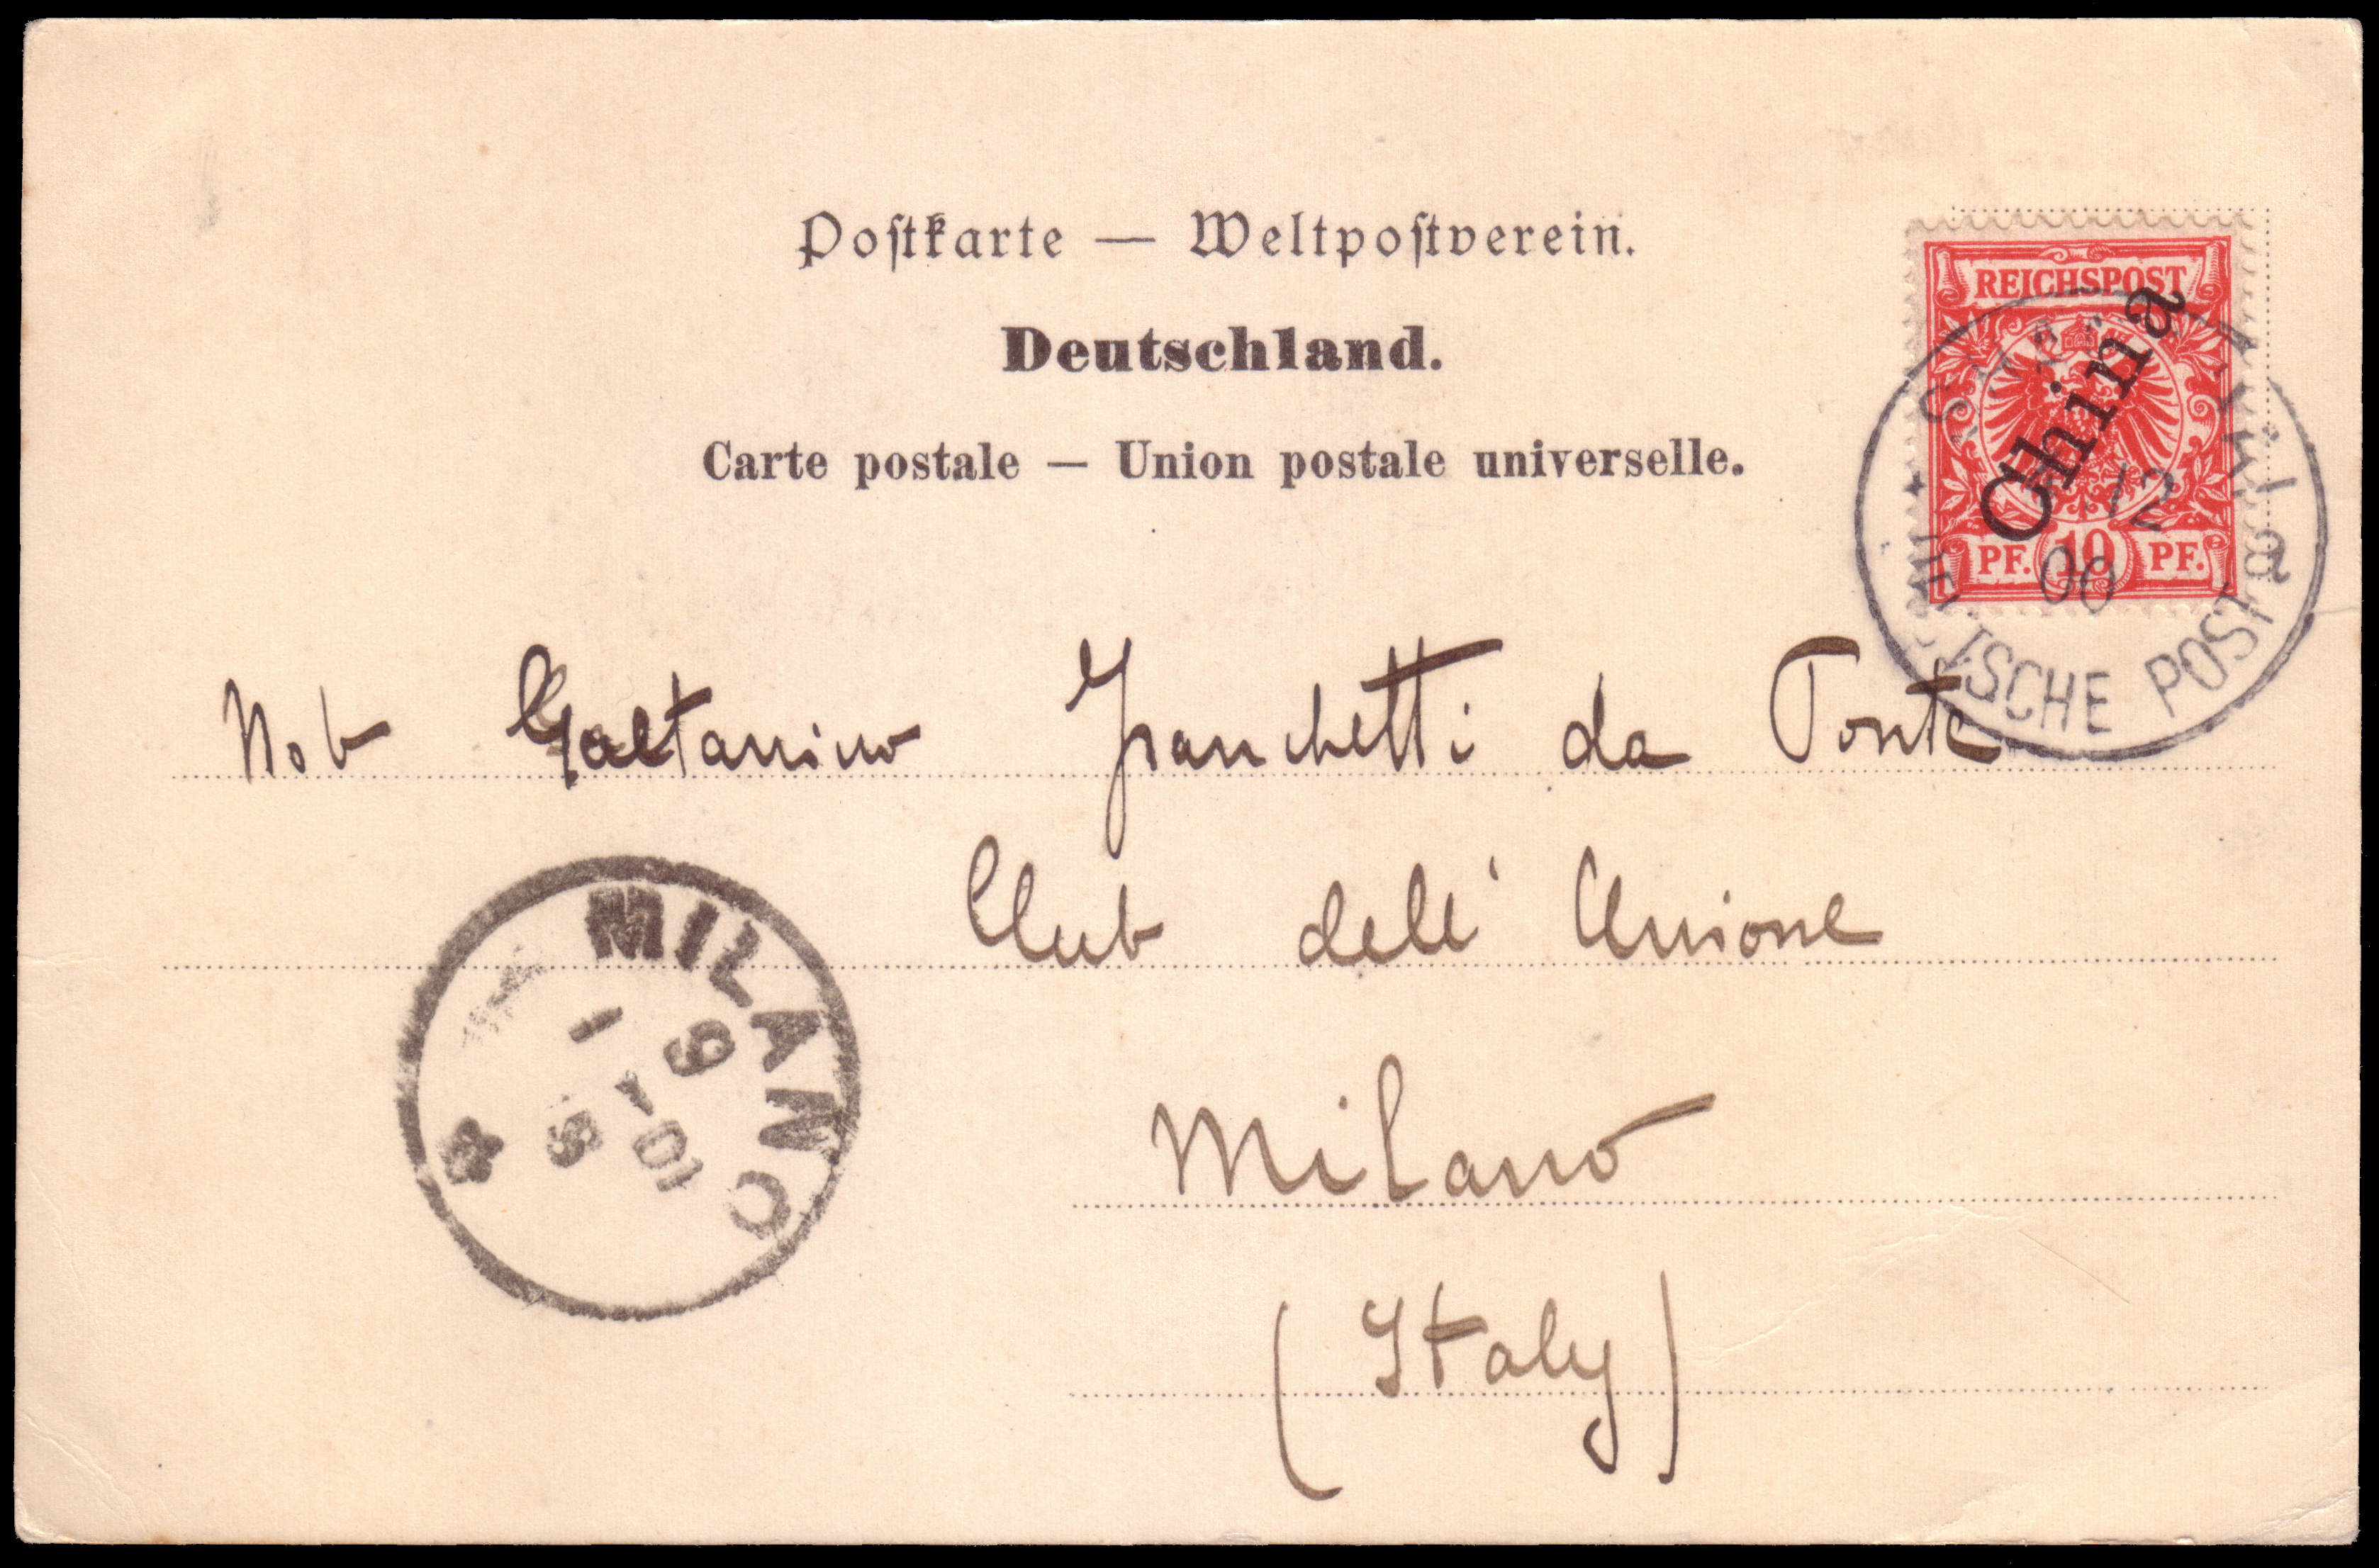 Postkarte — Weltpostverein.
Deutschland.
Carte postale — Union postale universelle.
REICHSPOST
China
PF. 10 PF.
12
00
a
ISCHE POST
Nob Gaetanino Franchetti da Ponte
Club dell' Unione
Milano
(Italy)
MILANO
9
1-01